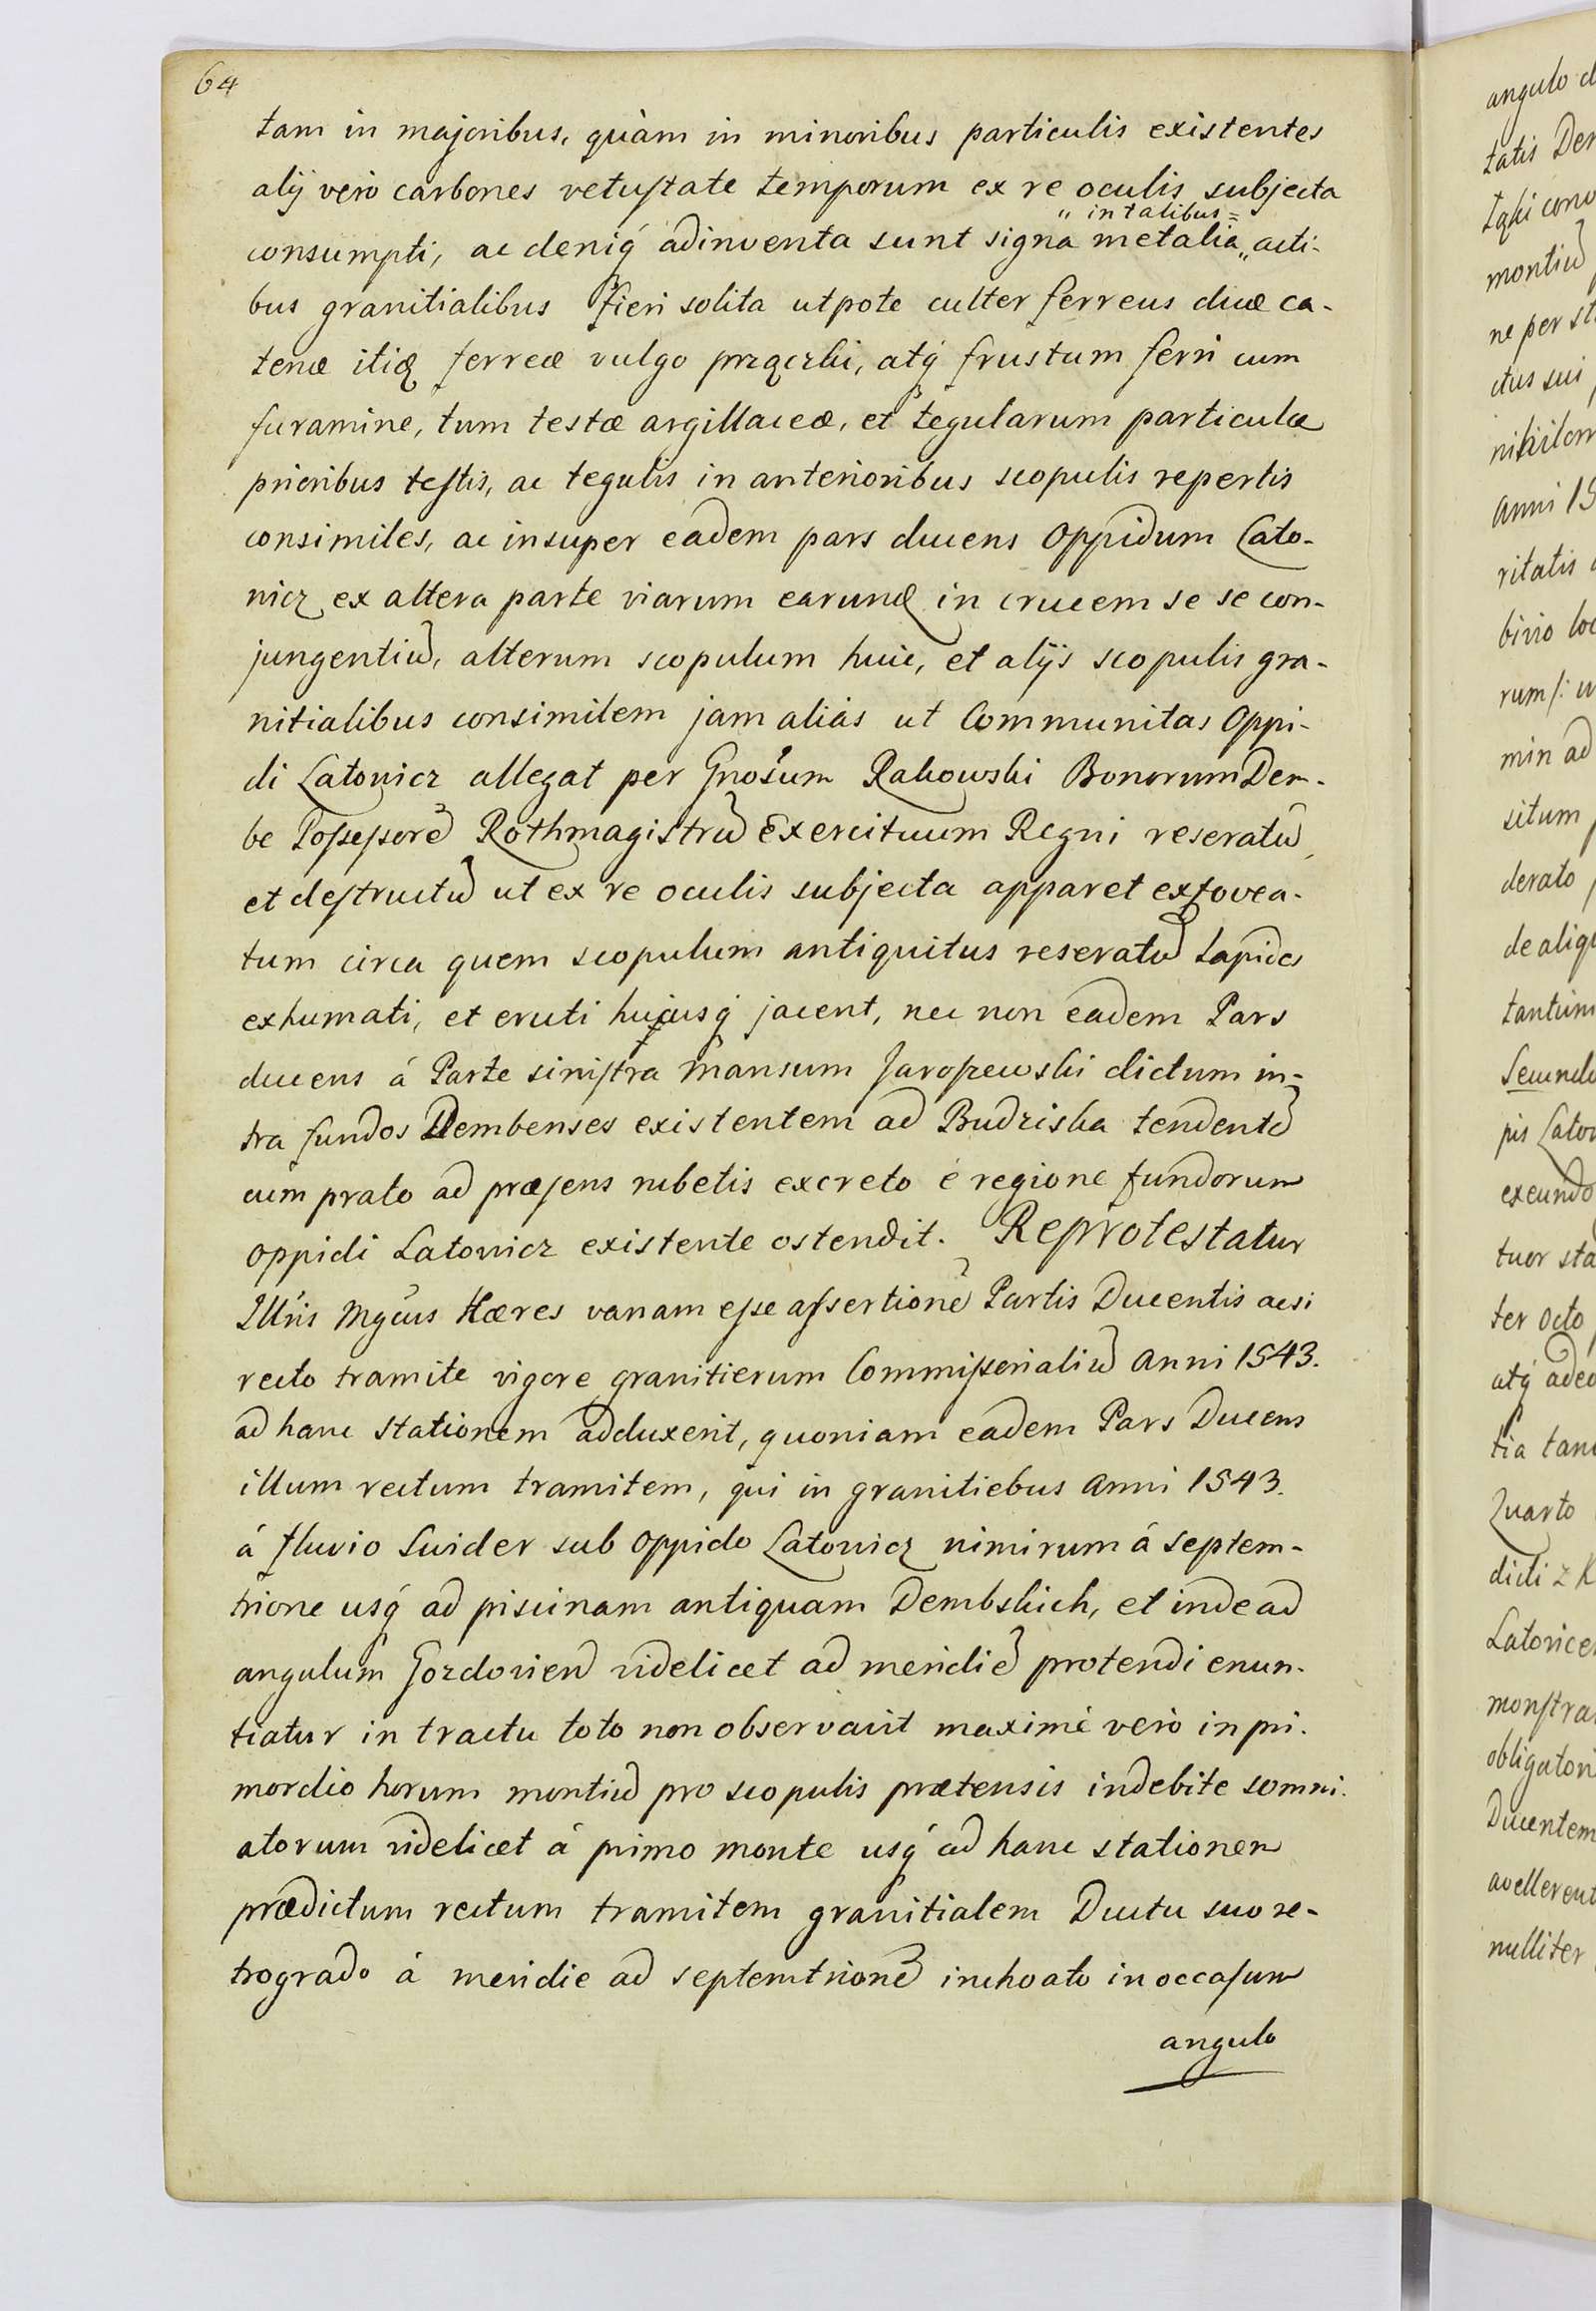 64
tam in majoribus, quàm in minoribus particulis existentes
alij verò carbones vetustate temporum ex re oculis subjecta
„ in talibus =
consumpti, ac deniq́ adinventa sunt signa metalia „ acti-
bus granitialibus fieri solita utpote culter ferreus duæ ca-
tenæ itiq ferreæ vulgo przączki, atq́ frustum ferri cum
furamine, tum testæ argillaceæ, et tegularum particulæ
prioribus testis, ac tegulis in anterioribus scopulis repertis
consimiles, ac insuper eadem pars ducens Oppidum Lato-
nicz ex altera parte viarum earund in crucem se se con-
jungentiũ, alterum scopulum huic, et alijs scopulis gra-
nitialibus consimilem jam aliàs ut Communitas Oppi-
di Latowicz allegat per Gnosum Rakowski Bonorum Dem-
be Possessorẽ Rothmagistrũ Exercituum Regni reseratũ,
et destructũ ut ex re oculis subjecta apparet exfovea-
tum circa quem scopulum antiquitus reseratũ Lapides
exhumati, et eruti hujusq́ jacent, nec non eadem Pars
ducens á Parte sinistra Mansum Jaroszewski dictum in-
tra fundos Dembenses existentem ad Budziska tendentẽ
cum prato ad præsens rubetis excreto é regione fundorum
oppidi Latowicz existente ostendit. Reprotestatur
Illris Mgcus Hæres vanam esse assertionẽ Partis Ducentis acsi
recto tramite vigore granitierum Commissorialiũ Anni 1543.
ad hanc stationem adduxerit, quoniam eadem Pars Ducens
illum rectum tramitem, qui in granitiebus Anni 1543.
á fluvio Swider sub Oppido Latowicz nimirum á septem-
trione usq́ ad piscinam antiquam Dembskich, et inde ad
angulum Gozdoviend videlicet ad meridiẽ protendi enun-
tiatur in tractu toto non observavit maximè verò in pri-
mordio horum montiũ pro scopulis prætensis indebite somni-
atorum videlicet á primo monte usq́ ad hanc stationem
prædictum rectum tramitem granitialem Ductu suo re-
trogrado á meridie ad septemtrionẽ inchoato in occasum
angulo
angulo
tatis
montiũ
ne per
ctus sui
Anni
ritatis
birio
rum
min ad
situm
derato
tantùm
pis
exeundo
ter octo
atq́
tia
Quarto
dicti z
Ducentem
nulliter